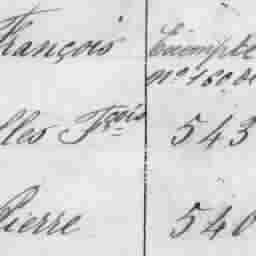 François Exempté
nº 180 de
lles Fçois 543
Pierre 540